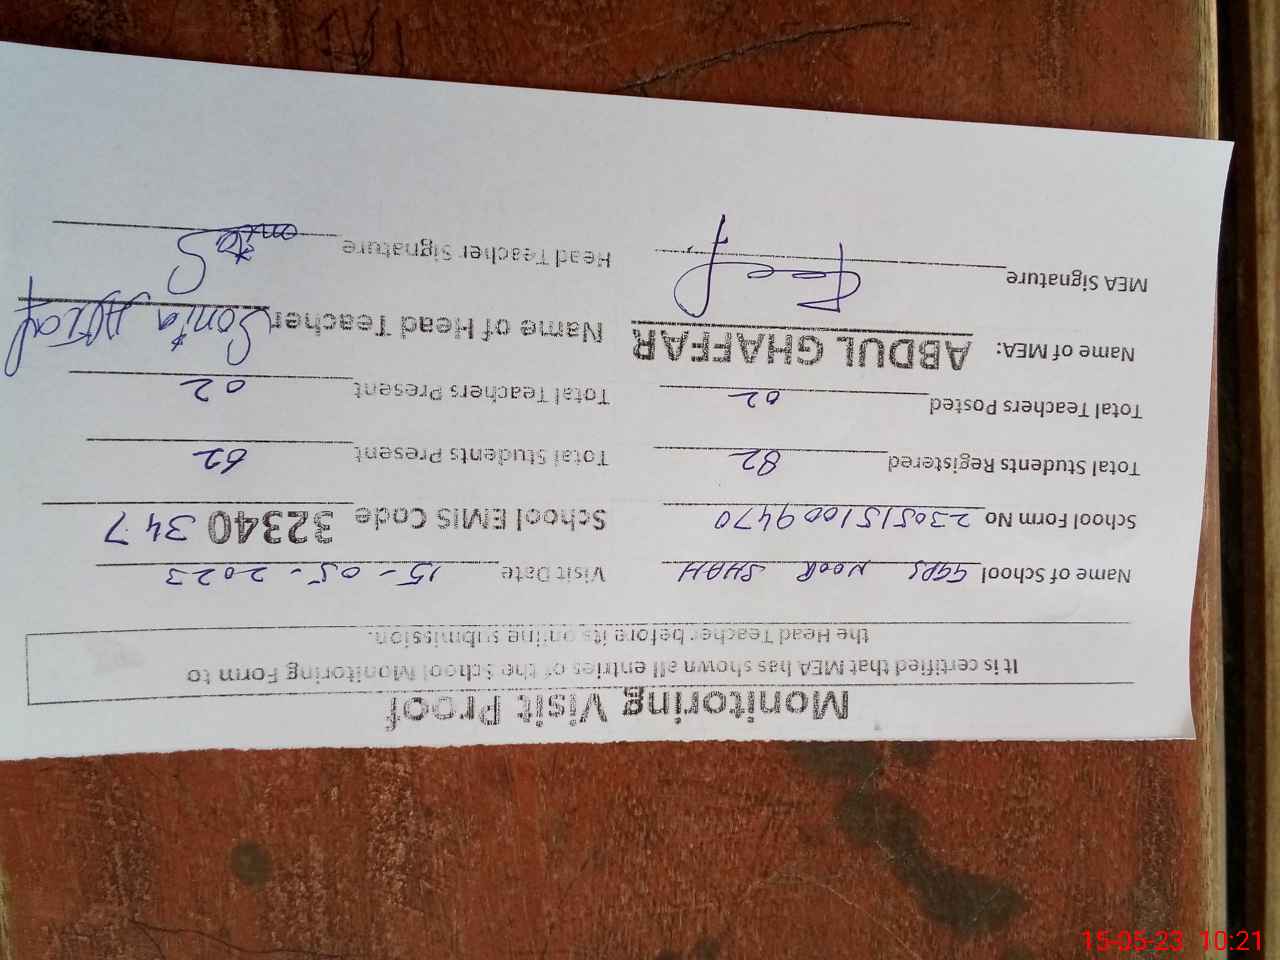 Monitoring Visit Proof
It is certified that MEA has shown all entries of the School Monitoring Form to
the Head Teacher before its online submission.
Name of School GGPS NOOR SHAH Visit Date 15-05-2023
School Form No 2305151009470 School EMIS Code 32340 347
Total Students Registered 82 Total Students Present 62
Total Teachers Posted 02 Total Teachers Present 02
Name of MEA: ABDUL GHAFFAR Name of Head Teacher Sonia
MEA Signature Head Teacher Signature
15-05-23 10:21